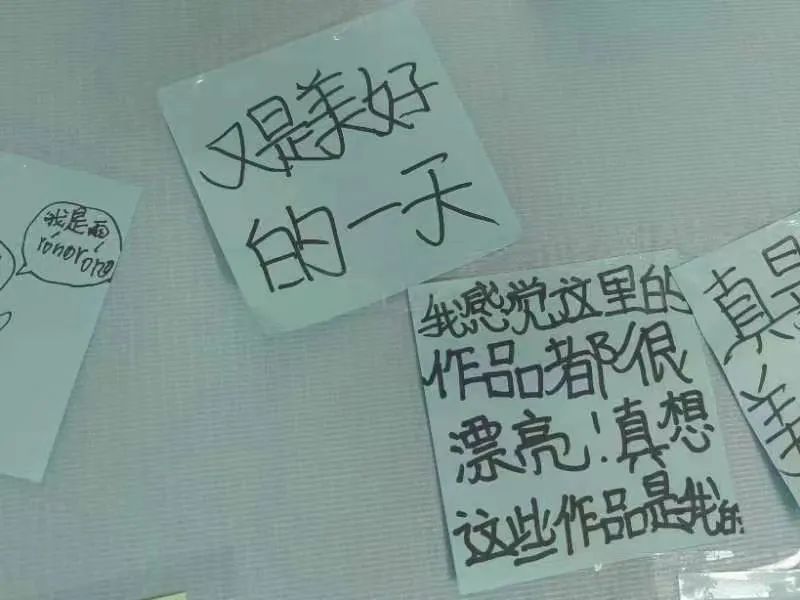 又是美好
的一天
我是雨
rónororo
我感觉这里的
作品都很
漂亮!真想
这些作品是我的
真是
美